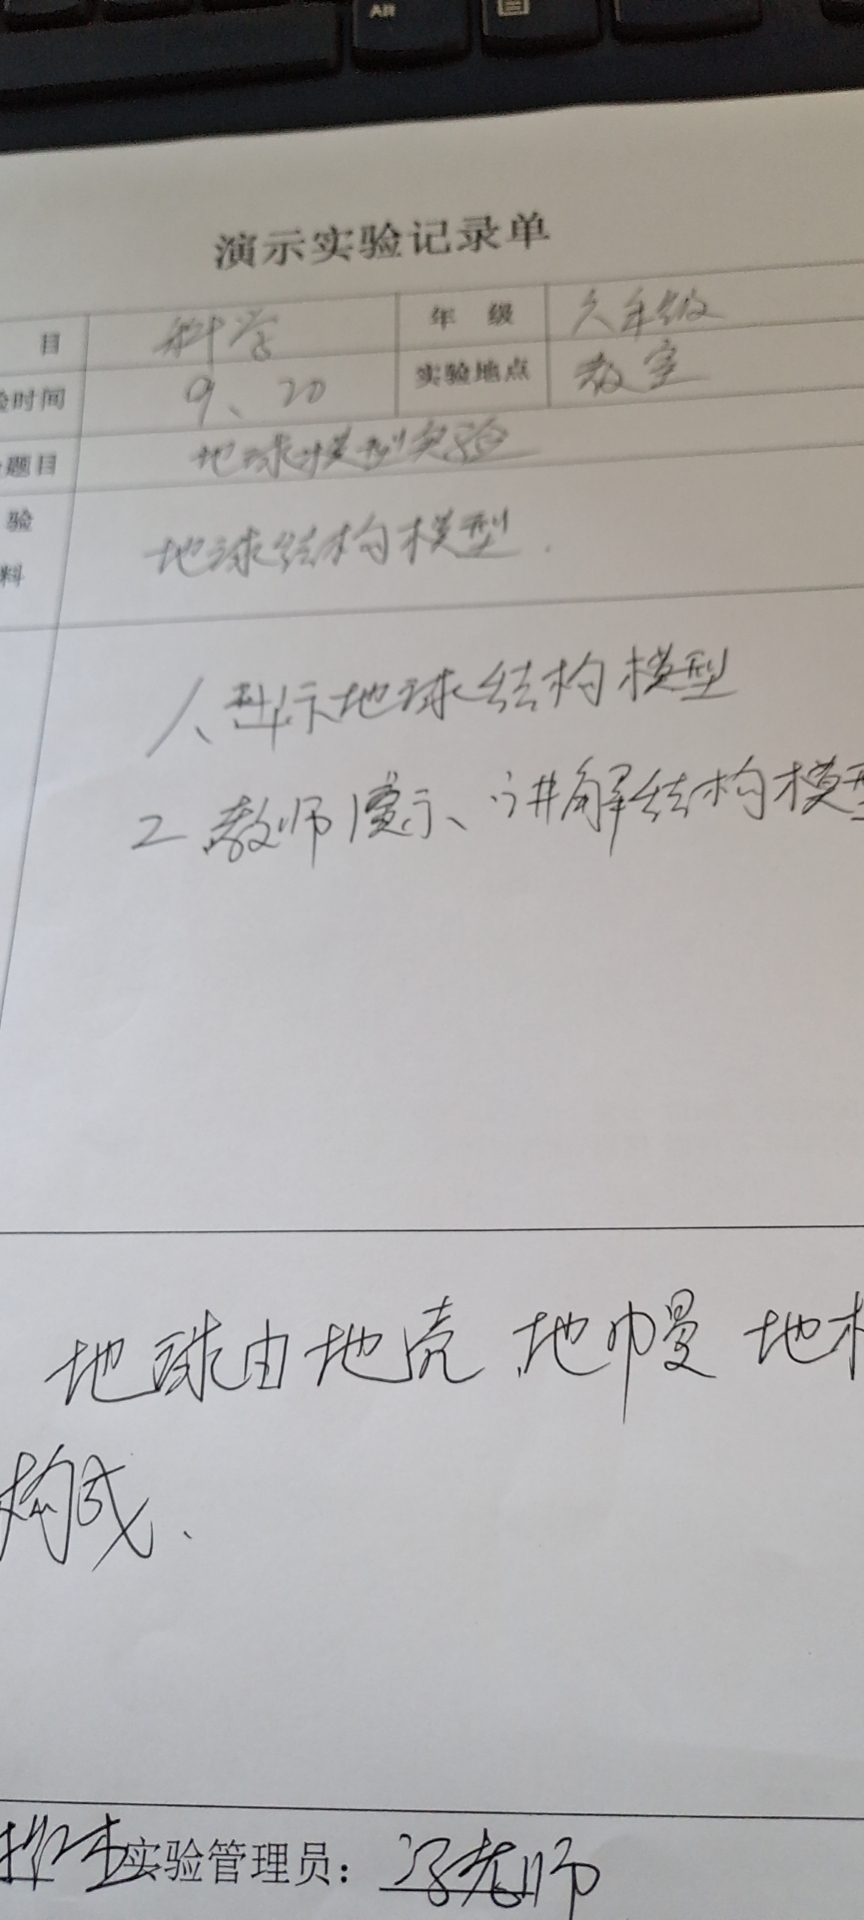 Alt
演示实验记录单
目 科学 年 级 六年级
验时间 9、20 实验地点 教室
题目 地球模型实验
验
料 地球结构模型.
1、出示地球结构模型
2 教师演示、讲解结构模型
地球由地壳、地幔 地核
构成、
实验管理员： 冯老师